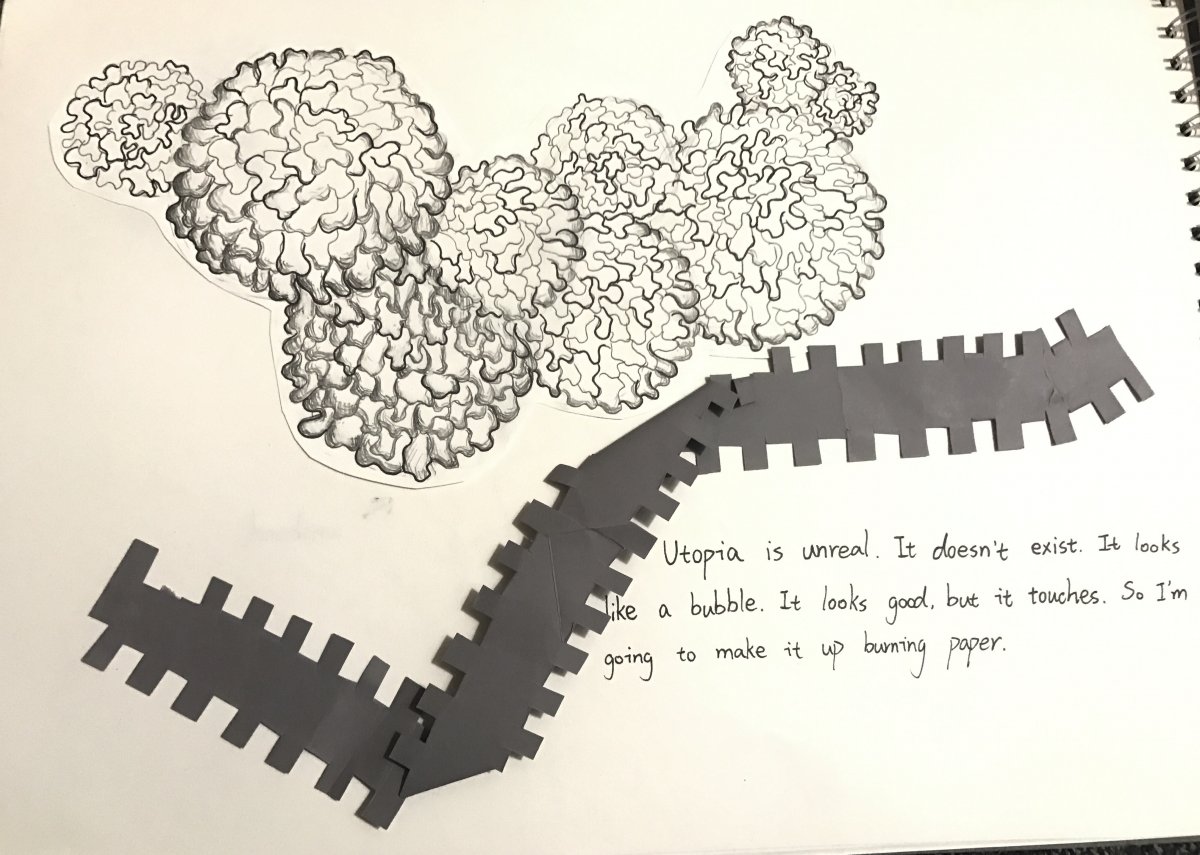 Utopia is unreal. It doesn't exist. It looks
like a bubble. It looks good, but it touches. So I'm
going to make it up burning paper.